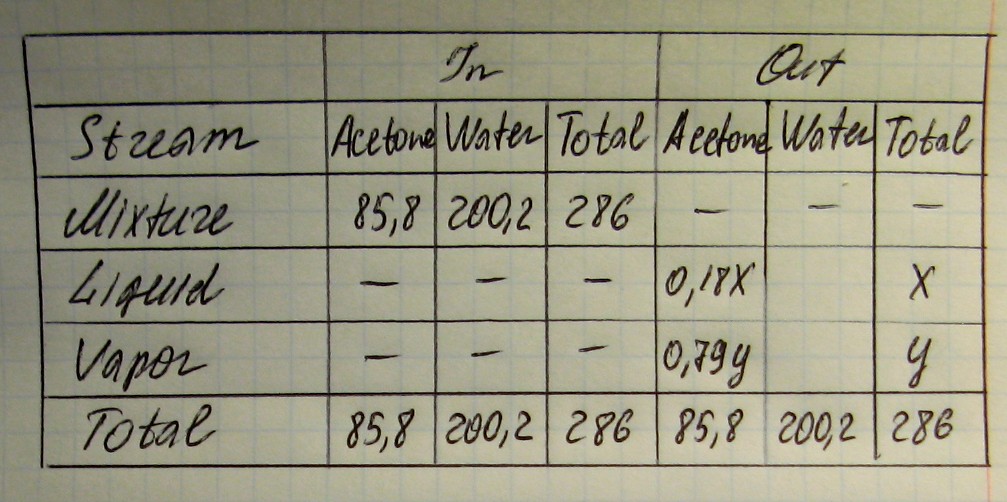 In Out
Stream Acetone Water Total Acetone Water Total
Mixture 85,8 200,2 286 — — —
Liquid — — — 0,18X X
Vapor — — — 0,79y y
Total 85,8 200,2 286 85,8 200,2 286